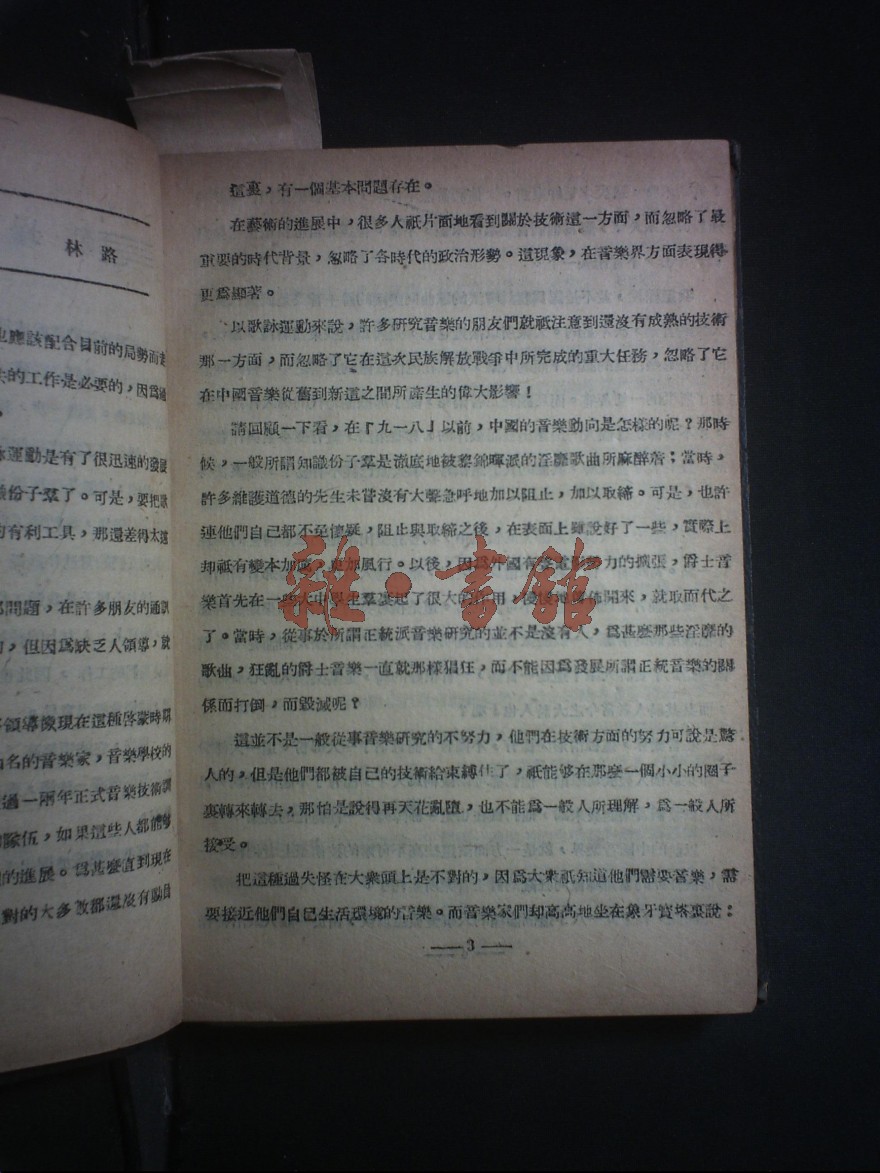 林路
也應該配合目前的局勢而走
的工作是必要的，因爲過
運動是有了很迅速的發展
份子羣了。可是，要把歌
的有利工具，那還差得太遠
問題，在許多朋友的通訊
，但因爲缺乏人領導，就
領導像現在這種啓蒙時期
名的音樂家，音樂學校的
過一兩年正式音樂技術訓
隊伍，如果這些人都能夠
的進展。爲甚麼直到現在
對的大多數都還沒有動員
這裏，有一個基本問題存在。
在藝術的進展中，很多人祇片面地看到關於技術這一方面，而忽略了最
重要的時代背景，忽略了各時代的政治形勢。這現象，在音樂界方面表現得
更爲顯著。
以歌詠運動來說，許多研究音樂的朋友們就祇注意到還沒有成熟的技術
那一方面，而忽略了它在這次民族解放戰爭中所完成的重大任務，忽略了它
在中國音樂從舊到新這之間所產生的偉大影響！
請回顧一下看，在『九一八』以前，中國的音樂動向是怎樣的呢？那時
候，一般所謂知識份子羣是澈底地被黎錦暉派的淫靡歌曲所麻醉着；當時，
許多維護道德的先生未嘗沒有大聲急呼地加以阻止，加以取締。可是，也許
連他們自己都不免懷疑，阻止與取締之後，在表面上雖說好了一些，實際上
却祇有變本加厲，更加風行。以後，因爲外國有聲電影勢力的擴張，爵士音
樂首先在一些大中學生羣裏起了很大的作用，慢慢地傳佈開來，就取而代之
了。當時，從事於所謂正統派音樂研究的並不是沒有人，爲甚麼那些淫靡的
歌曲，狂亂的爵士音樂一直就那樣猖狂，而不能因爲發展所謂正統音樂的關
係而打倒，而毀滅呢？
這並不是一般從事音樂研究的不努力，他們在技術方面的努力可說是驚
人的，但是他們都被自己的技術給束縛住了，祇能夠在那麼一個小小的圈子
裏轉來轉去，那怕是說得再天花亂墮，也不能爲一般人所理解，爲一般人所
接受。
把這種過失怪在大衆頭上是不對的，因爲大衆祇知道他們需要音樂，需
要接近他們自己生活環境的音樂。而音樂家們却高高地坐在象牙寶塔裏說：
— 3 —
雜·書館